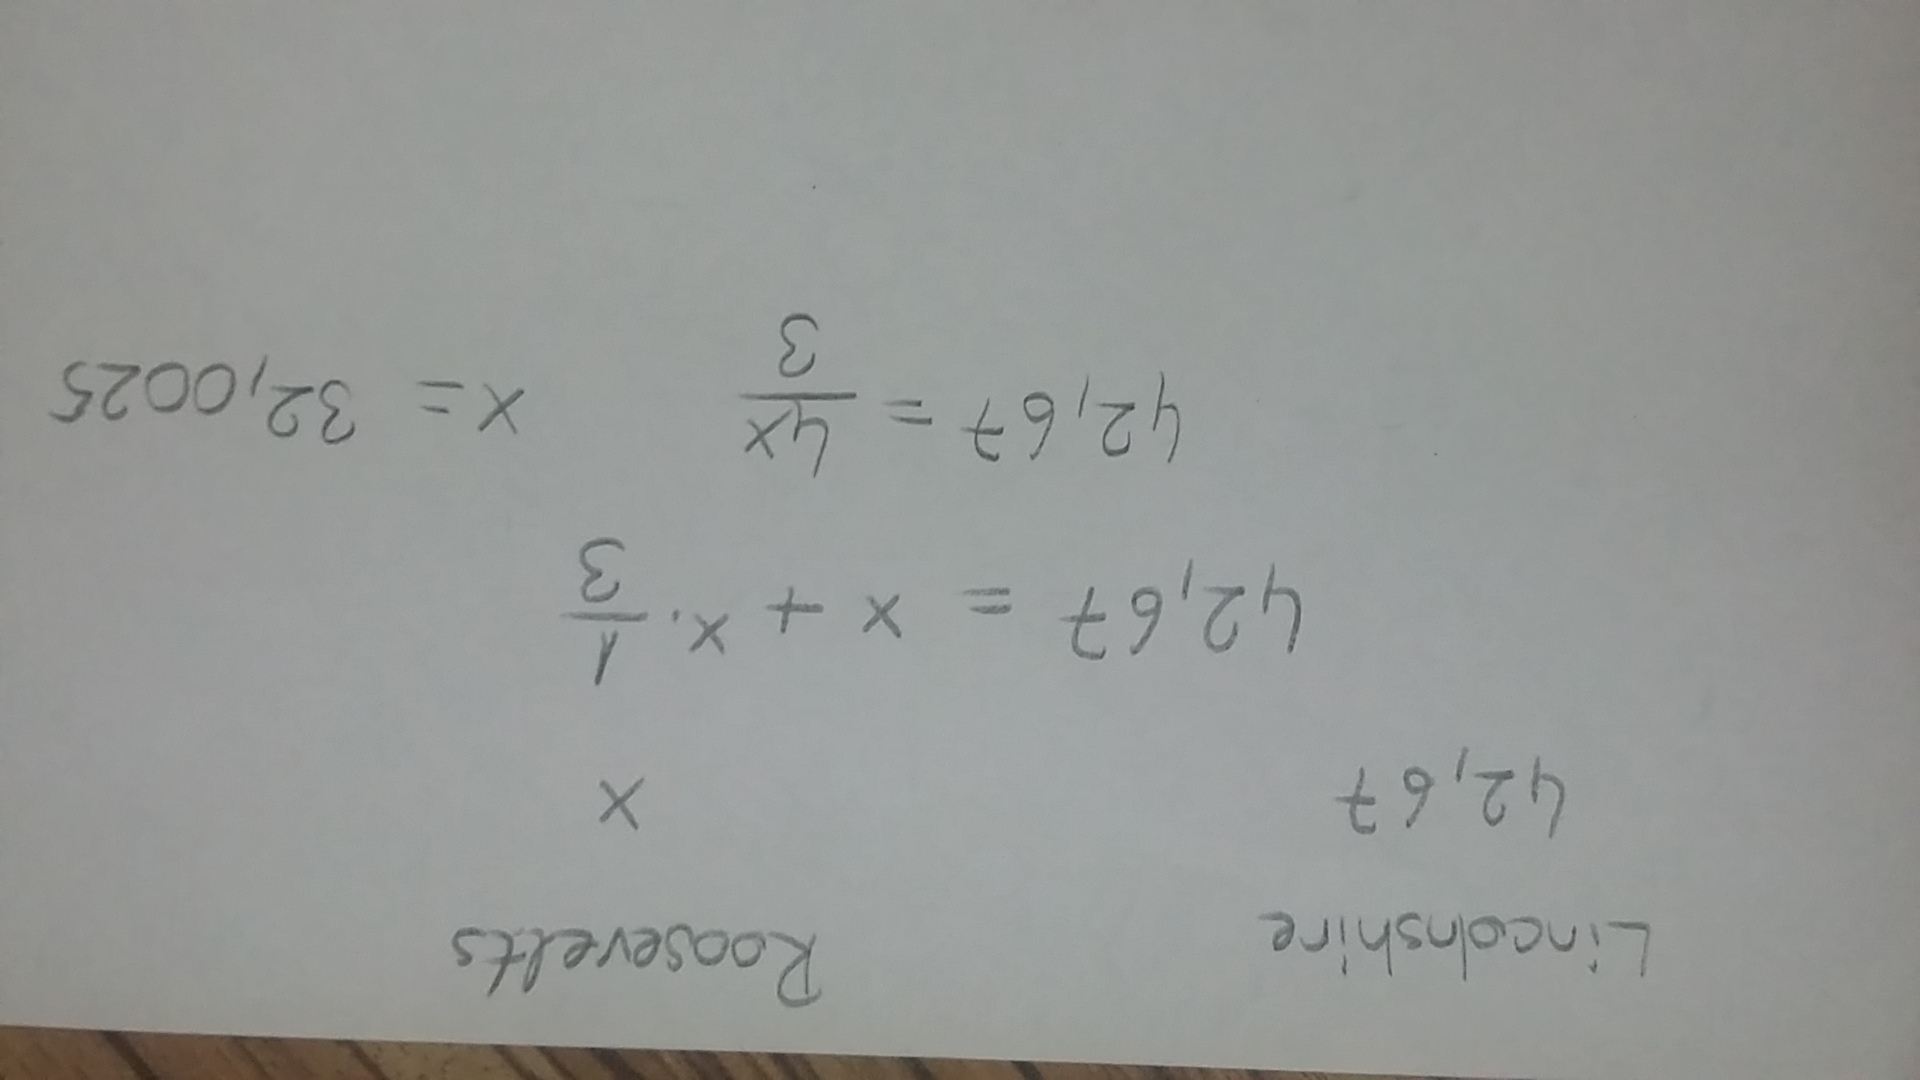 Lincolnshire Roosevelts
42,67 x
42,67 = x + x · 1/3
42,67 = 4x/3 x = 32,0025